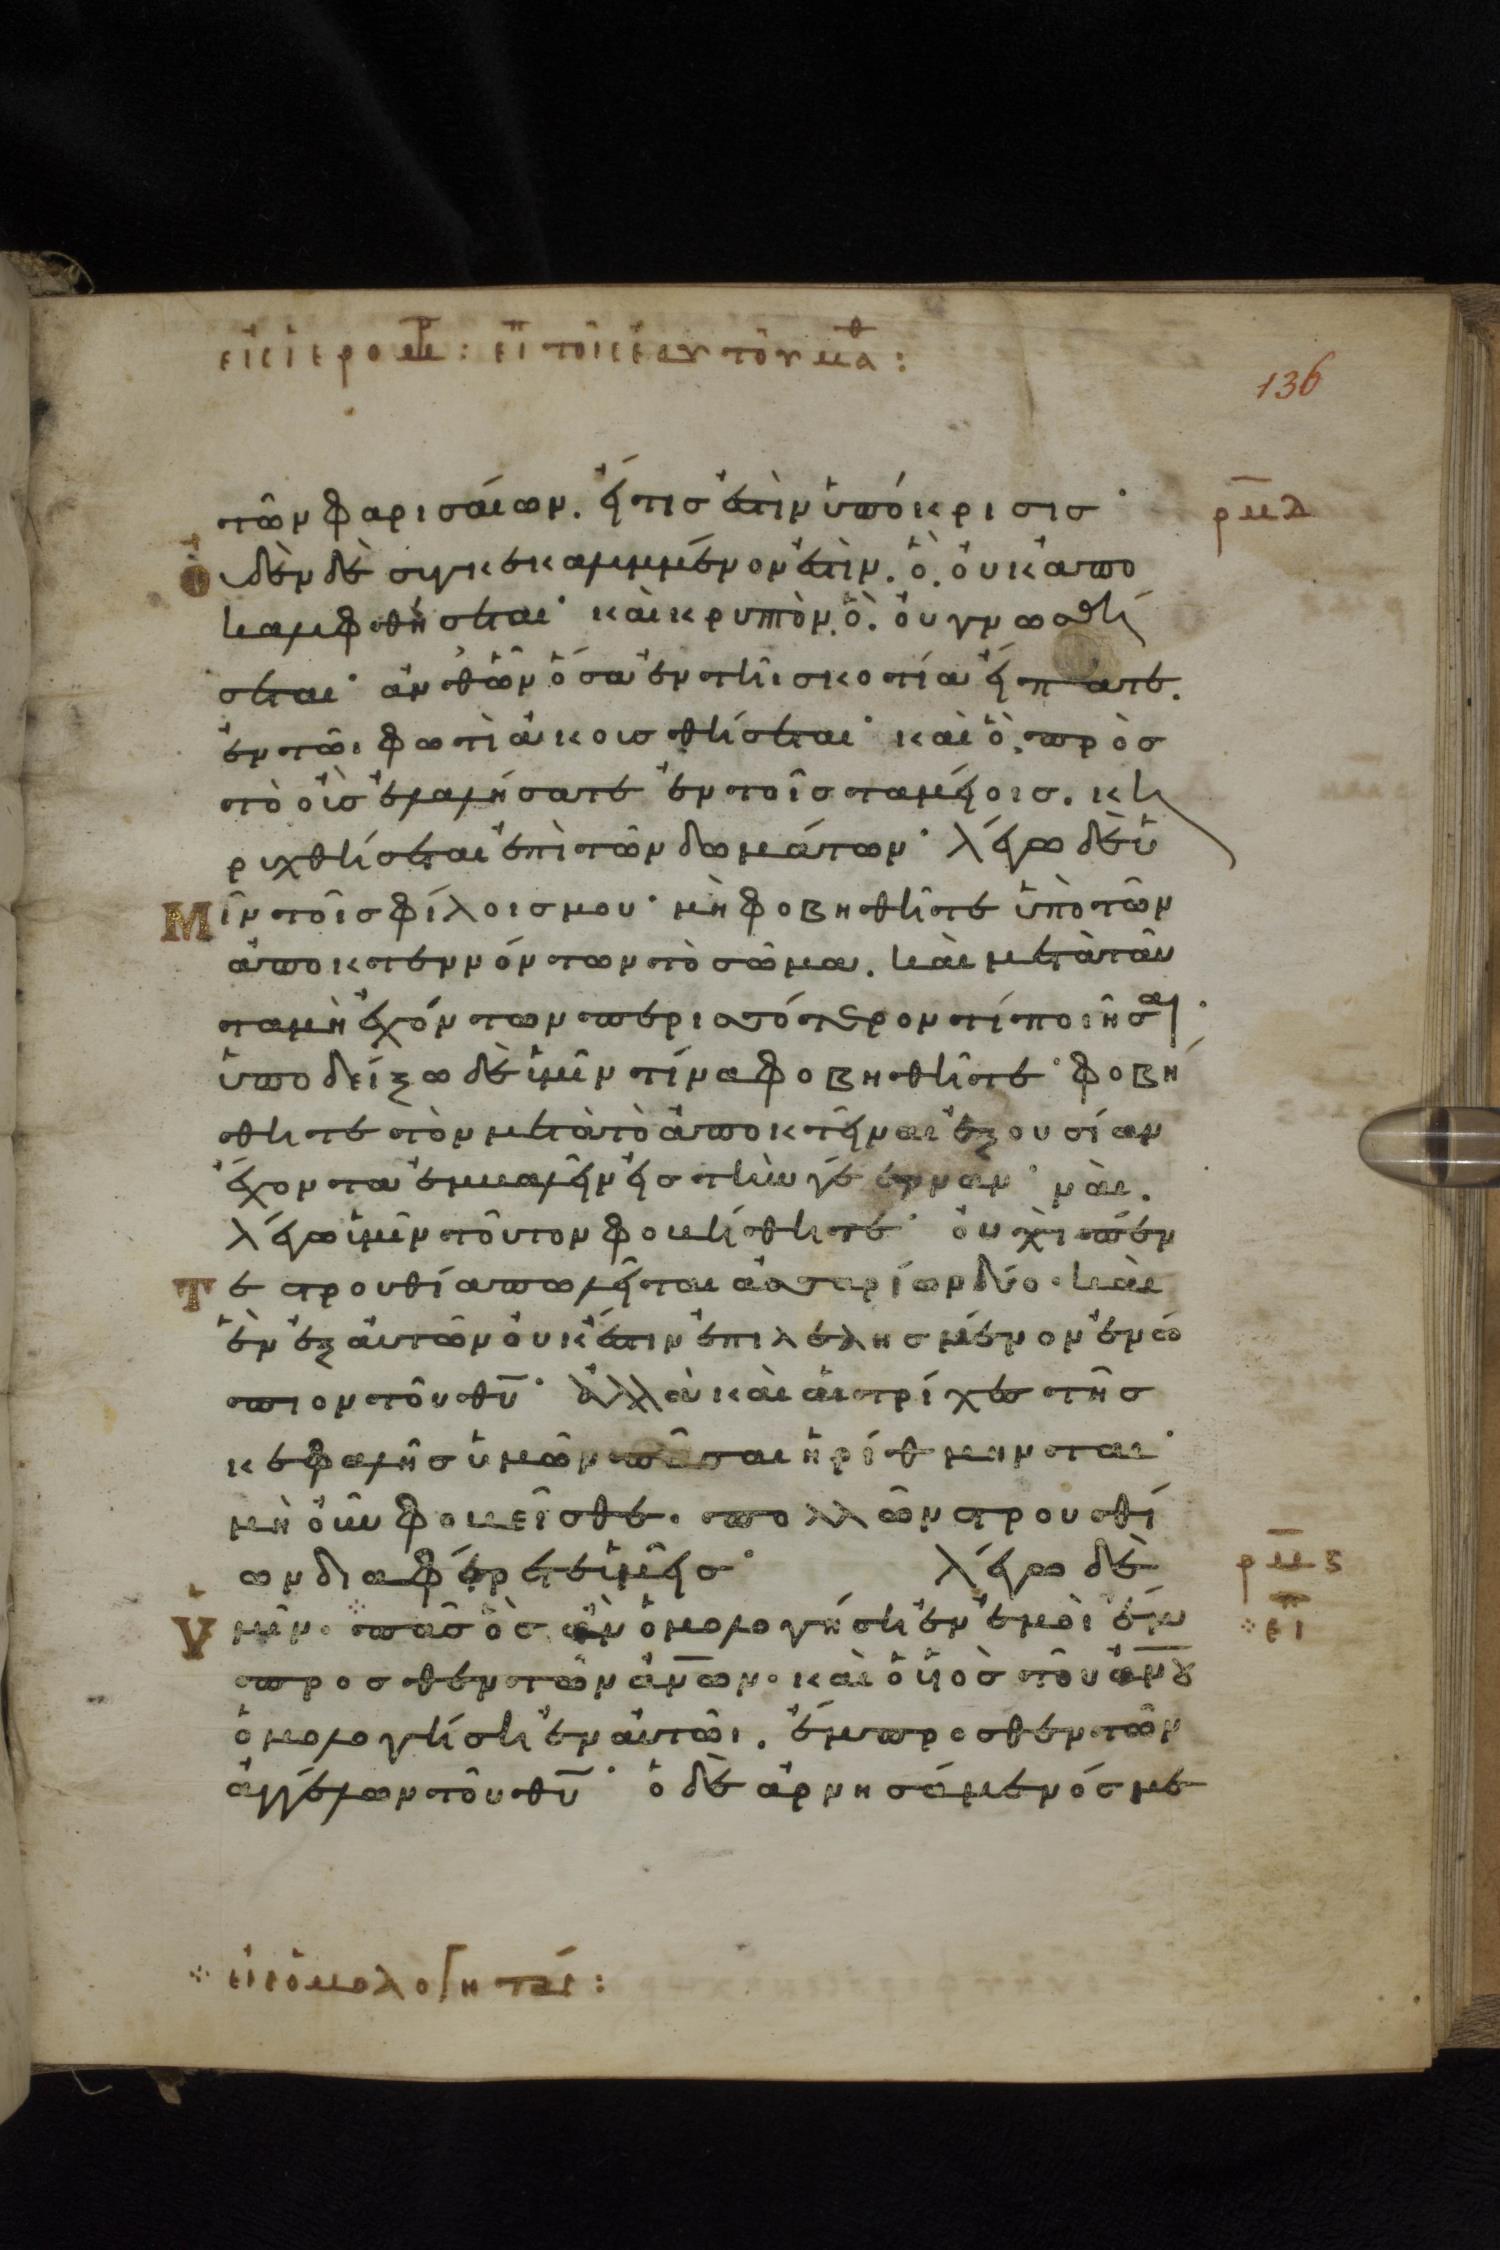 εἰς ἱερομ: εἶπ τοῖς ἑαυτοῦ μαθ:
136
τῶν φαρισαίων. ἥτις ἐστὶν ὑπόκρισις·
ρμδ
Οὐδὲν δὲ συγκεκαλυμμένον ἐστὶν. ὃ οὐκ ἀπο
καλυφθήσεται· καὶ κρυπτὸν. ὃ οὐ γνωσθή
σεται· ἀνθῶν ὅσα ἐν τῆι σκοτία εἴπατε.
ἐν τῶι φωτὶ ἀκουσθήσεται· καὶ ὃ πρὸς
τὸ οὖς ἐλαλήσατε ἐν τοῖς ταμείοις. κη
ρυχθήσεται ἐπὶ τῶν δωμάτων· λέγω δὲ ὑ
Μῖν τοῖς φίλοις μου· μὴ φοβηθῆτε ὑπὸ τῶν
ἀποκτεννόντων τὸ σῶμα. καὶ μετὰ ταῦ
τα μὴ ἐχόντων περισσότερον τί ποιῆσαι·
ὑποδείξω δὲ ὑμῖν τίνα φοβηθῆτε· φοβή
θητε τὸν μετὰ τὸ ἀποκτεῖναι ἐξουσίαν
ἔχοντα ἐμβαλεῖν εἰς τὴν γέενναν· ναὶ.
λέγω ὑμῖν τοῦτον φοβήθητε· οὐχὶ πέν
Τε στρουθία πωλεῖται ἀσσαρίων δύο· καὶ
ἓν ἐξ αὐτῶν οὐκ ἔστιν ἐπιλελησμένον ἐνώ
πιον τοῦ θυ· ἀλλὰ καὶ αἱ τρίχες τῆς
κεφαλῆς ὑμῶν πᾶσαι ἠρίθμηνται·
μὴ οὖν φοβεῖσθε· πολλῶν στρουθί
ων διαφέρετε ὑμεῖς· λέγω δὲ
ρμε
Ὑμῖν· πᾶς ὃς ἂν ὁμολογήσει ἐν ἐμοὶ ἔμ
εἶπ
προσθεν τῶν ἀνων· καὶ ὁ υἱὸς τοῦ ἀνου
ὁμολογήσει ἐν αὐτῶι. ἔμπροσθεν τῶν
ἀγγέλων τοῦ θυ· ὁ δὲ ἀρνησάμενός με
εἰς ὁμολογητάς: